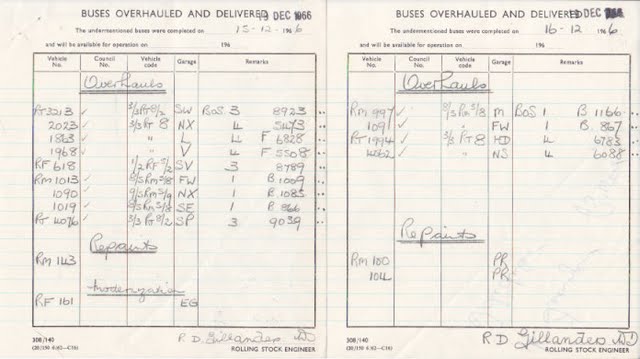 BUSES OVERHAULED AND DELIVERED
DEC 1966
The undermentioned buses were completed on 15-12- 196 6
and will be available for operation on 196
Vehicle No. Council No. Vehicle code Garage Remarks
Overhauls
RT3213 ✓ 3/3RT8/2 SW BOS 3 8923
2023 ✓ 3/3 RT 8 NX 4
1863 ✓ " L 4 F 6828
1968 ✓ " V 4 F 5508
RF 618 1/2 RF SV 3 8789
RM 1013 ✓ FW 1 B 1009
1090 ✓ NX 1 B 1085
1019 ✓ SE 1 B 866
RT 4076 ✓ 3/3 RT 8/2 SP 3 9039
Repaints
RM 143
Modernization
RF 161 EG
308/140
R. D. Gillanders
ROLLING STOCK ENGINEER
BUSES OVERHAULED AND DELIVERED
DEC
The undermentioned buses were completed on 16-12 196 6
and will be available for operation on 196
Vehicle No. Council No. Vehicle code Garage Remarks
Overhauls
RM 997 ✓ M BOS 1 B 1166
1091 ✓ " FW 1 B 867
RT 1994 ✓ 3/3 RT 8 HD 4 6783
4062 ✓ " NS 4 6088
Repaints
RM 100 PR
104 PR
308/140
R D Gillanders
ROLLING STOCK ENGINEER